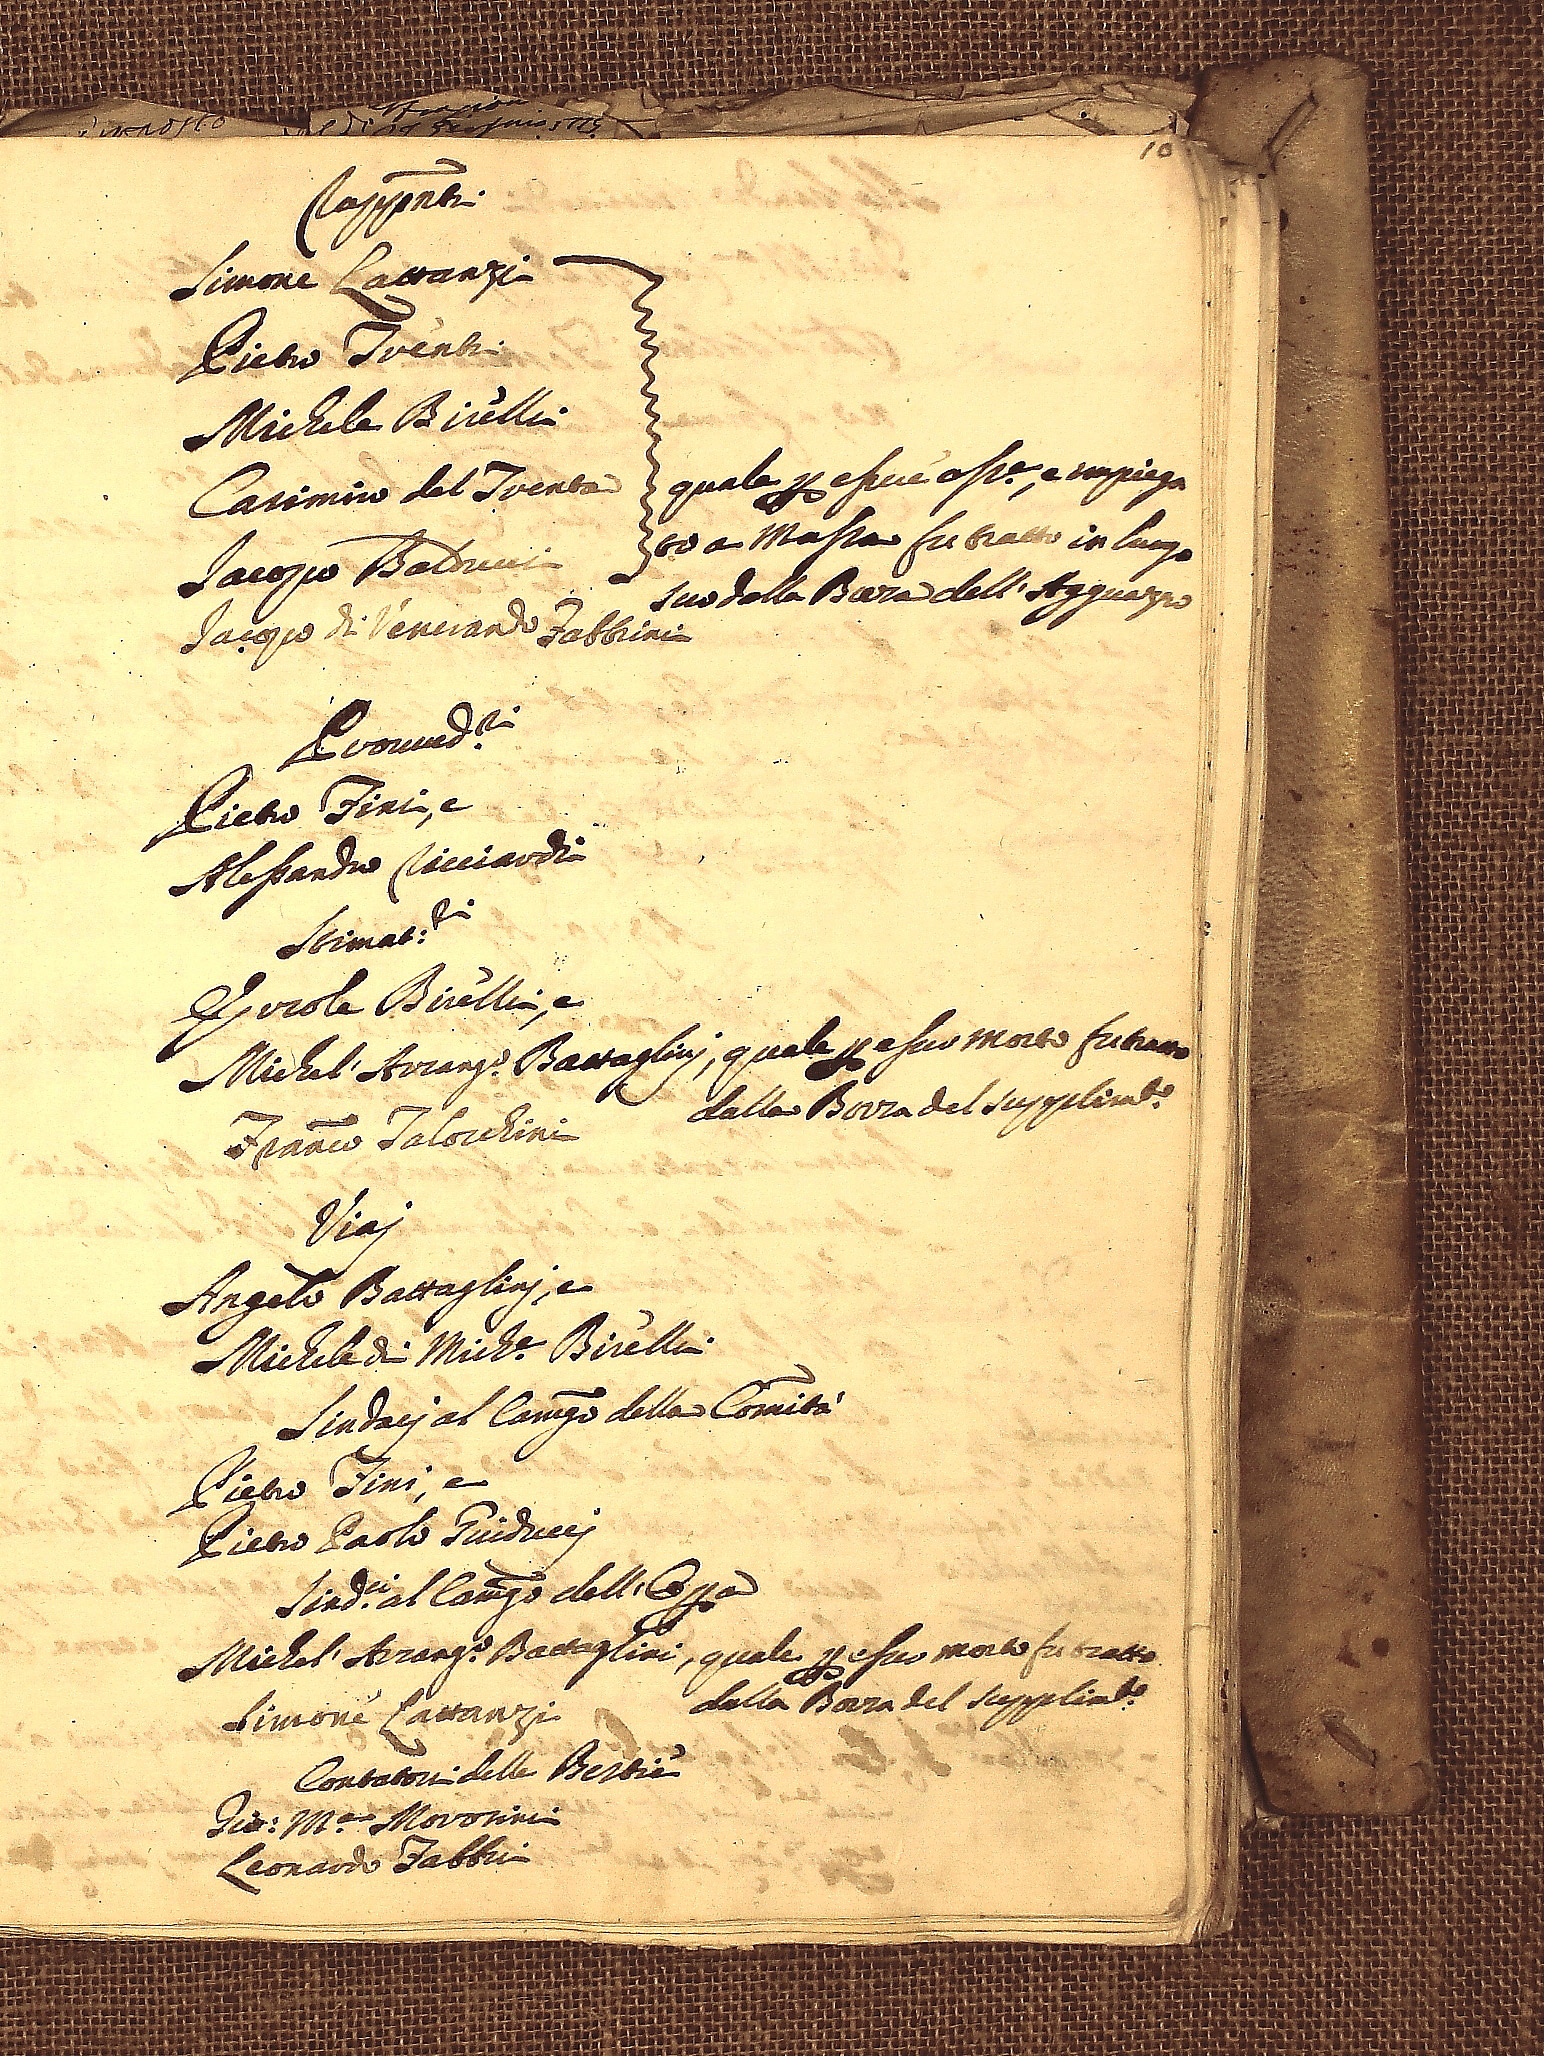 10
Rapp̃nti
Simone Lattanzi
Pietro Trenti
Michele Birelli
Casimiro del Trenta
quale p esser ass.e, e impiega
Jacopo Balducci
to a Massa fu tratto in luogo
suo dalla Borza dell'Agguazzo
Jacopo di Venerando Fabbrini
Provved.ri
Pietro Fini, e
Alessandro Ricciardi
Stimat:ri
Ercole Birelli, e
Michel' Arcang.o Battaglinj, quale p esser morto fu tratto
dalla Borza del supplim.to
Franc̃o Talocchini
Viaj
Angelo Battaglinj, e
Michele di Mich.e Birelli
Sindacj al Camg̃o della Com̃ità
Pietro Fini, e
Pietro Paolo Guiduccj
Sind.ci al Camg̃o dell'Opp̃a
Michel' Arcang.o Battaglini, quale p esser morto fu tratto
dalla Borza del supplim.to
Simone Lattanzi
Contatori delle Bestie
Gio: M.a Morosini
Leonardo Fabbri